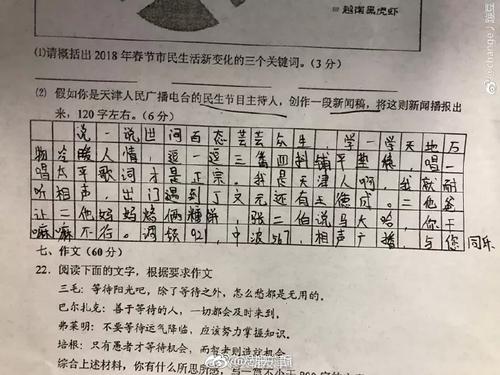 越南黑虎虾
(1)请概括出 2018 年春节市民生活新变化的三个关键词。(3 分)
(2) 假如你是天津人民广播电台的民生节目主持人，创作一段新闻稿，将这则新闻播报出
来，120 字左右。(6 分)
说一说世间百态芸芸众生，学一学天地万
物冷暖人情，逗一逗三番四抖铺平垫稳，唱一
唱太平歌词才是正宗。我是天津人啊，我就耐
听相声，出门遇到丁文元还有王德成。二他爸
让二他妈妈烙俩糖饼，张二伯说马大哈，你干
嘛嘛不行。调频 92.1，中波 567，相声广播，与您同乐
七、作文（60 分）
22. 阅读下面的文字，根据要求作文
三毛：等待阳光吧，除了等待之外，怎么愁都是无用的。
巴尔扎克：善于等待的人，一切都会及时来到。
弗莱明：不要等待运气降临，应该努力掌握知识。
培根：只有愚者才等待机会，而智者则造就机会
综合上述材料，你有什么所思所感